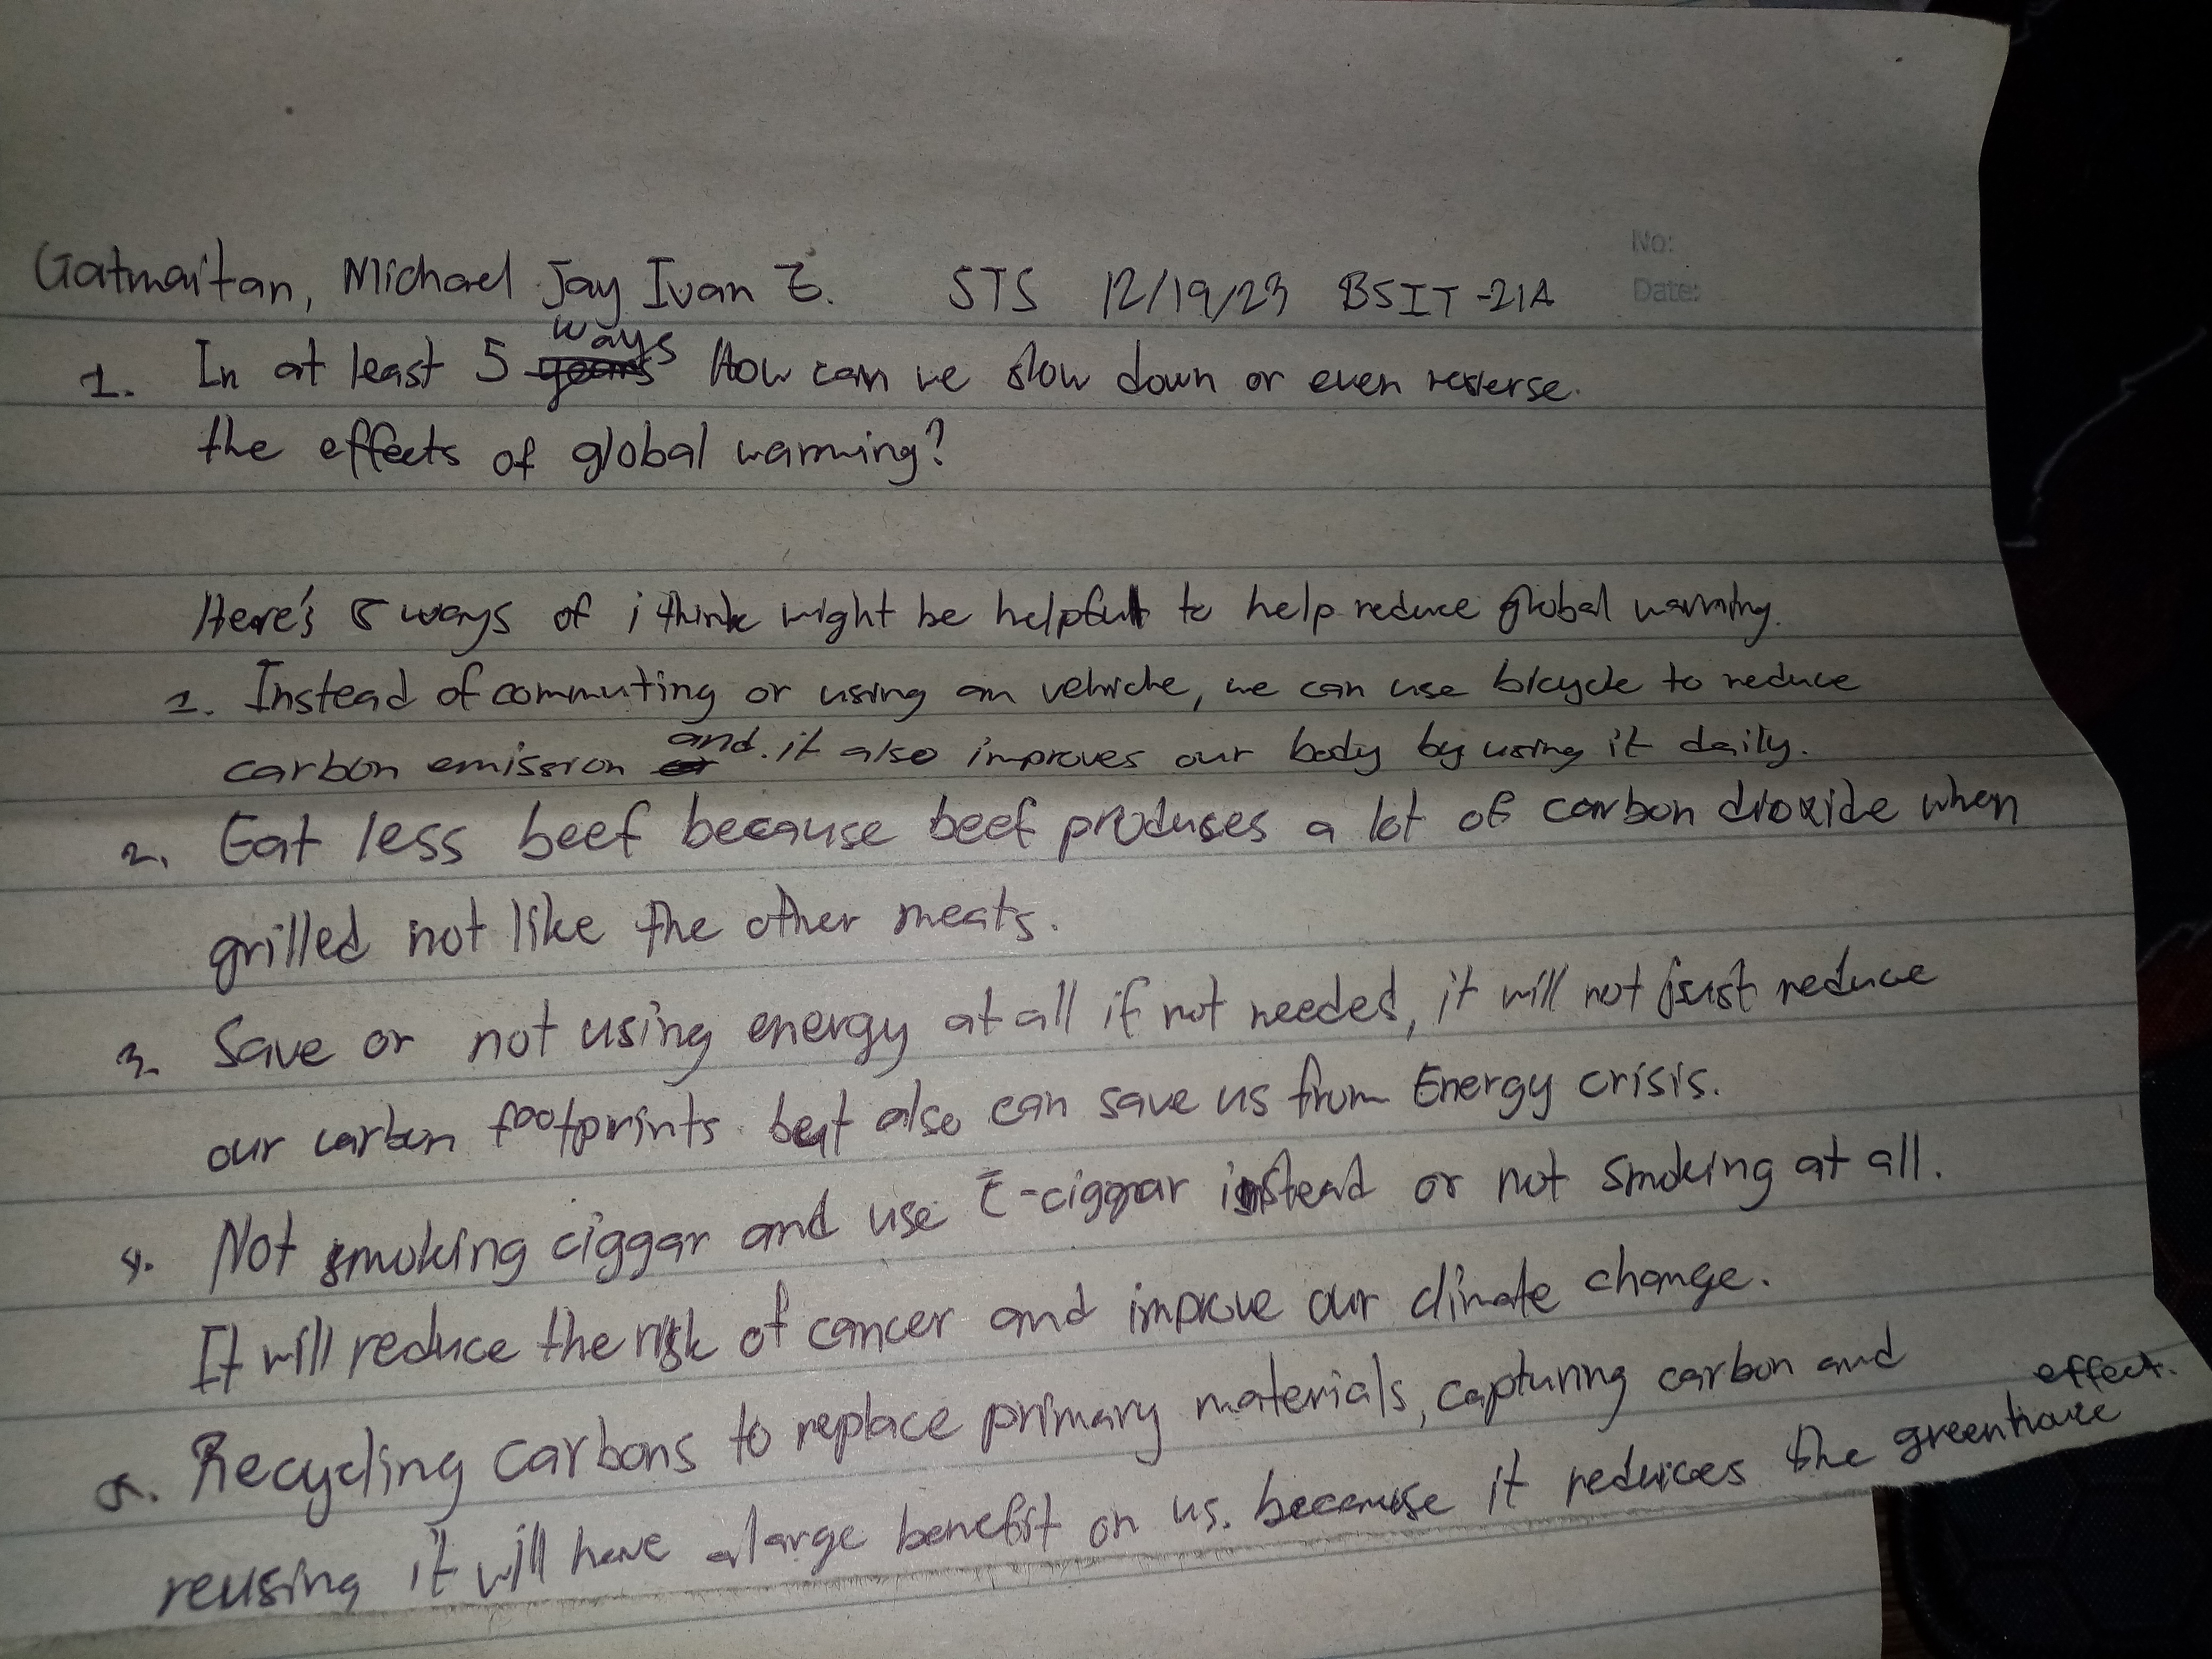 Gatmaitan, Michael Jay Ivan E. STS 12/19/23 BSIT-21A
No:
Date:
1. In at least 5 ways How can we slow down or even reverse.
the effects of global warming?
Here's 5 ways of i think might be helpful to help reduce global warming.
1. Instead of commuting or using an vehicle, we can use bicycle to reduce
carbon emission and. it also improves our body by using it daily.
2. Eat less beef because beef produses a lot of carbon dioxide when
grilled not like the other meats.
3. Save or not using energy at all if not needed, it will not just reduce
our carbon footprints but also can save us from Energy crisis.
4. Not smoking ciggar and use E-ciggar instead or not smoking at all.
It will reduce the risk of cancer and improve our climate change.
5. Recycling carbons to replace primary materials, capturing carbon and
reusing it will have a large benefit on us. because it reduces the greenhouse effect.